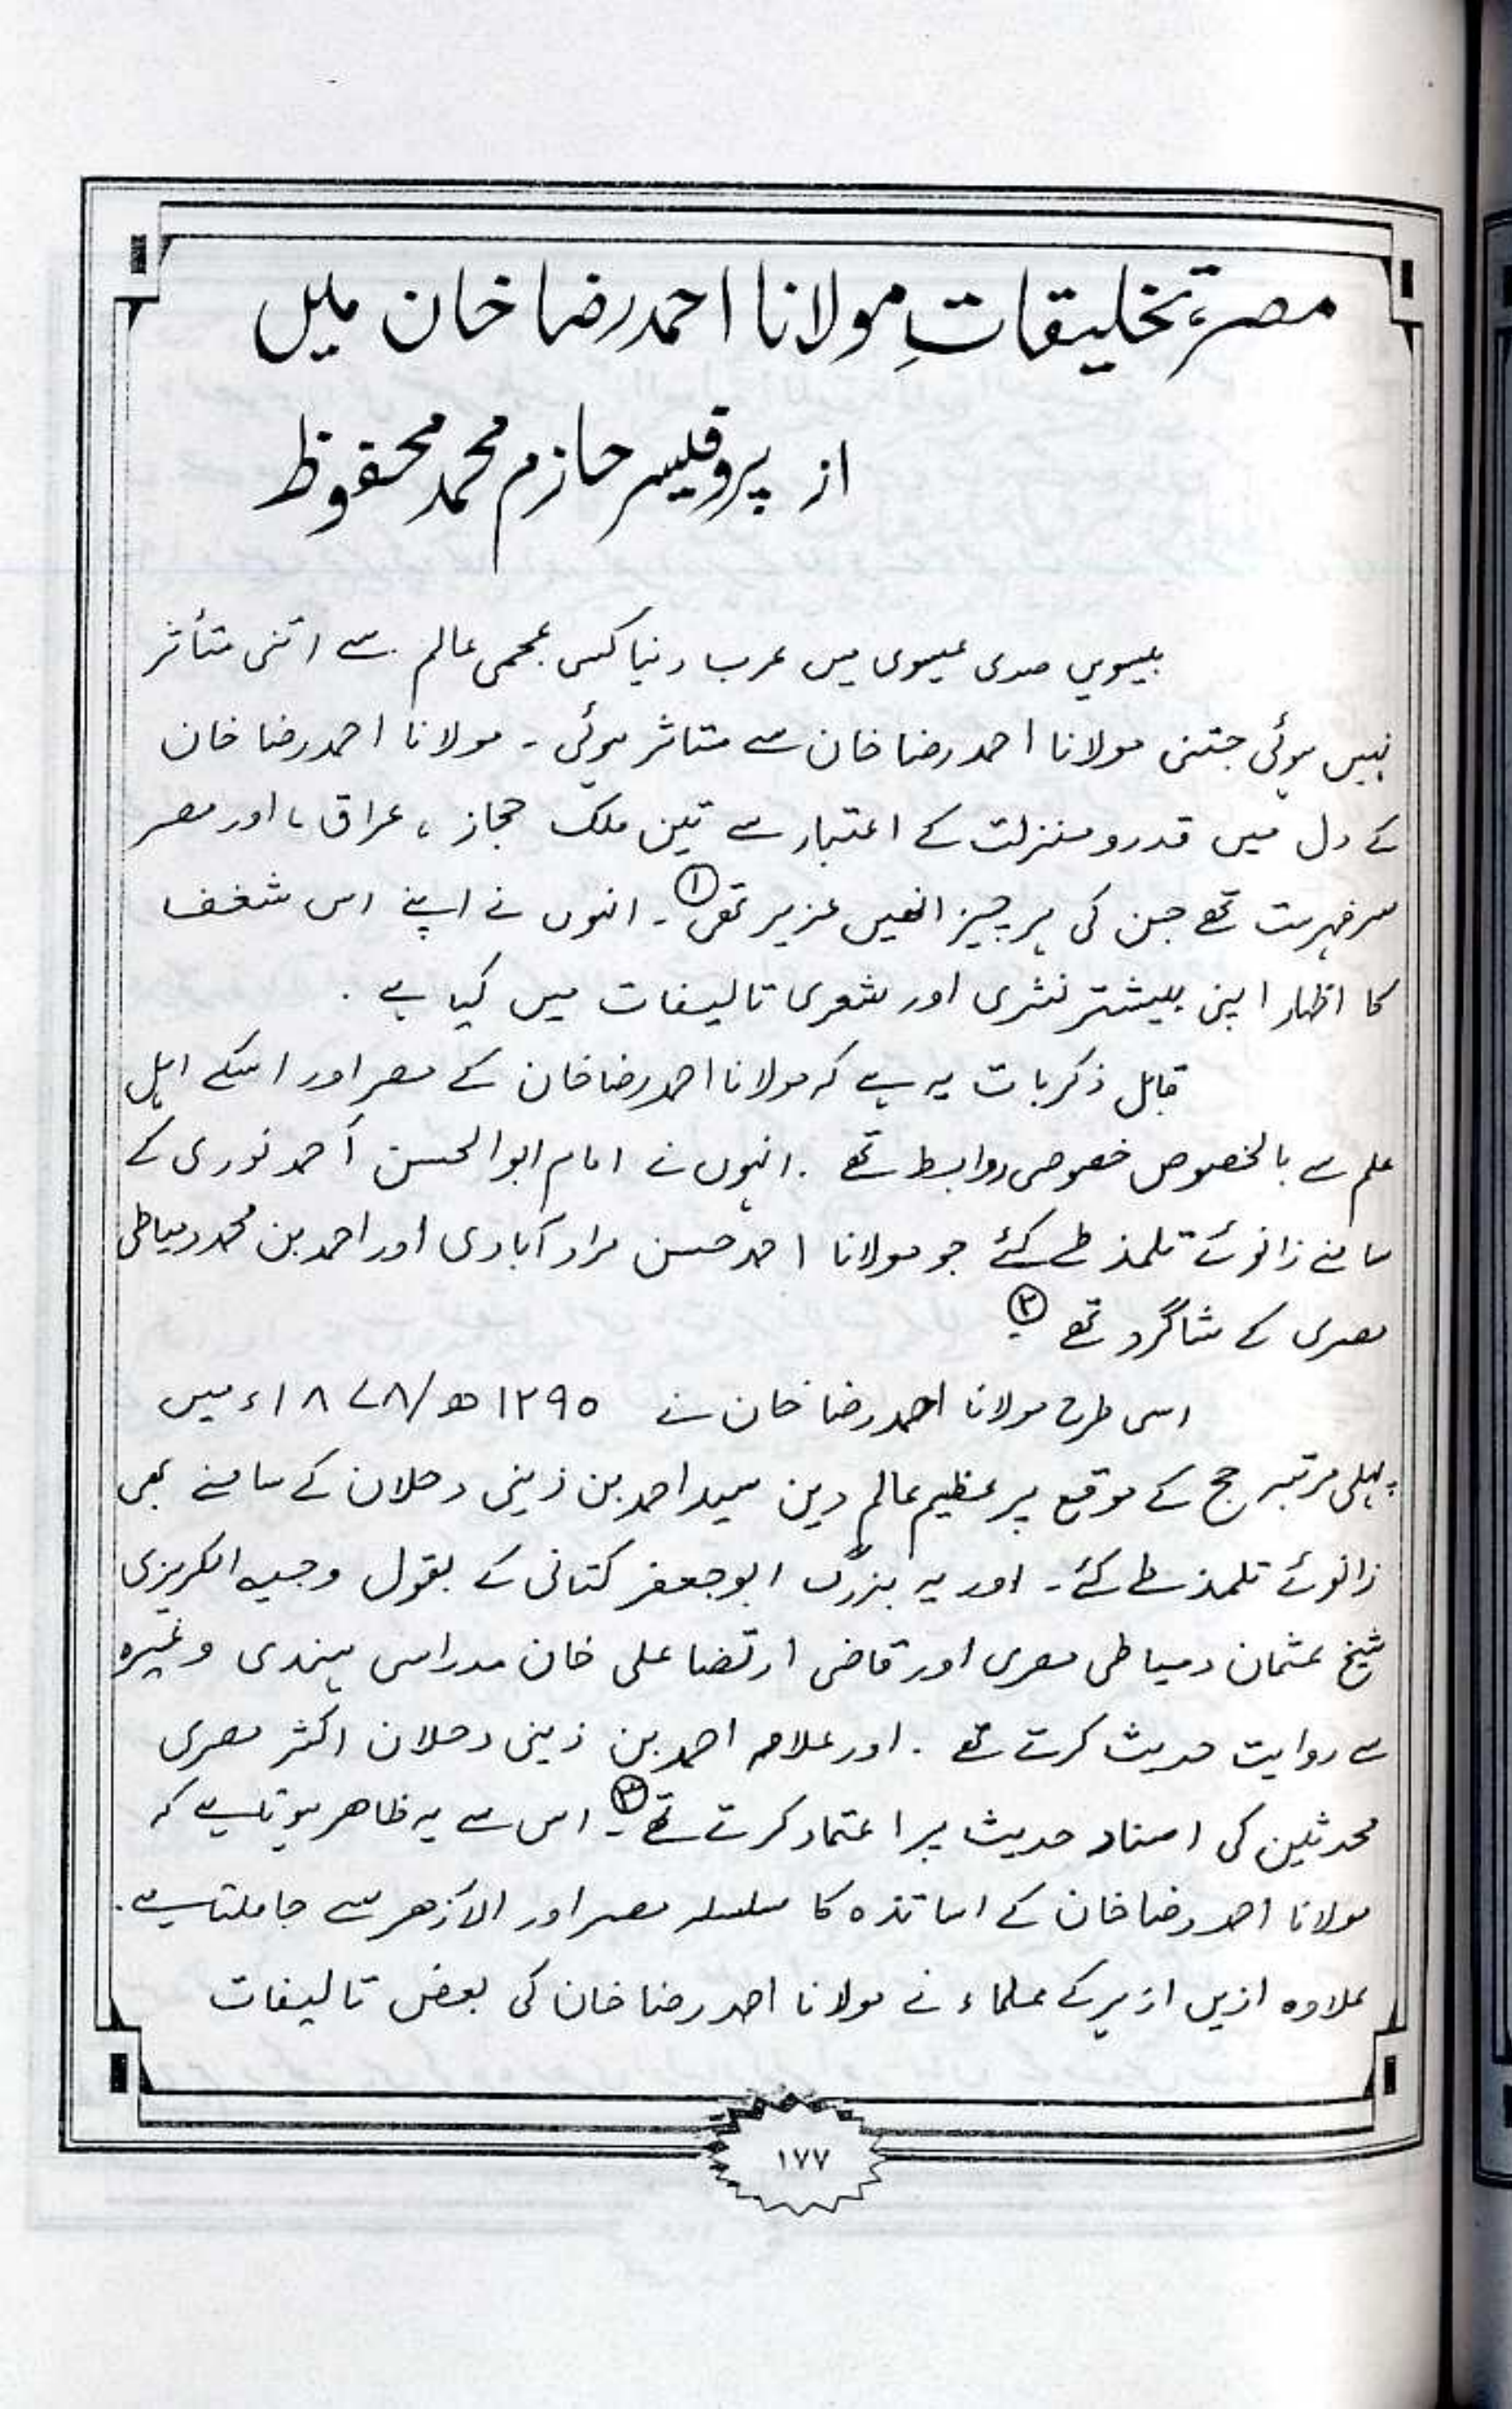 مصر، تخلیقاتِ مولانا احمد رضا خان میں
از پروفیسر حازم محمد محفوظ
بیسویں صدی عیسوی میں عرب دنیا کسی عجمی عالم سے اتنی متأثر
نہیں ہوئی جتنی مولانا احمد رضا خان سے متاثر ہوئی ۔ مولانا احمد رضا خان
کے دل میں قدر و منزلت کے اعتبار سے تین ملک حجاز ، عراق ، اور مصر
سرفہرست تھے جن کی ہر چیز انھیں عزیز تھی ①۔ انہوں نے اپنے اس شغف
کا اظہار اپنی بیشتر نثری اور شعری تالیفات میں کیا ہے .
قابل ذکر بات یہ ہے کہ مولانا احمد رضا خان کے مصر اور اسکے اہل
علم سے بالخصوص خصوصی روابط تھے . انہوں نے امام ابو الحسن أحمد نوری کے
سامنے زانوئے تلمذ طے کئے جو مولانا احمد حسن مراد آبادی اور احمد بن محمد دمیاطی
مصری کے شاگرد تھے ②۔
اسی طرح مولانا احمد رضا خان نے ۱۲۹۵ ھ/۱۸۷۸ء میں
پہلی مرتبہ حج کے موقع پر عظیم عالم دین سید احمد بن زینی دحلان کے سامنے بھی
زانوئے تلمذ طے کئے ۔ اور یہ بزرگ ابو جعفر کتانی کے بقول وجیہ الکریزی
شیخ عثمان دمیاطی مصری اور قاضی ارتضا علی خان مدراسی ہندی وغیرہ
سے روایت حدیث کرتے تھے . اور علامہ احمد بن زینی دحلان اکثر مصری
محدثین کی اسناد حدیث پر اعتماد کرتے تھے ③۔ اس سے یہ ظاہر ہوتا ہے کہ
مولانا احمد رضا خان کے اساتذہ کا سلسلہ مصر اور الأزھر سے جا ملتا ہے .
علاوہ ازیں ازہر کے علماء نے مولانا احمد رضا خان کی بعض تالیفات
۱۷۷